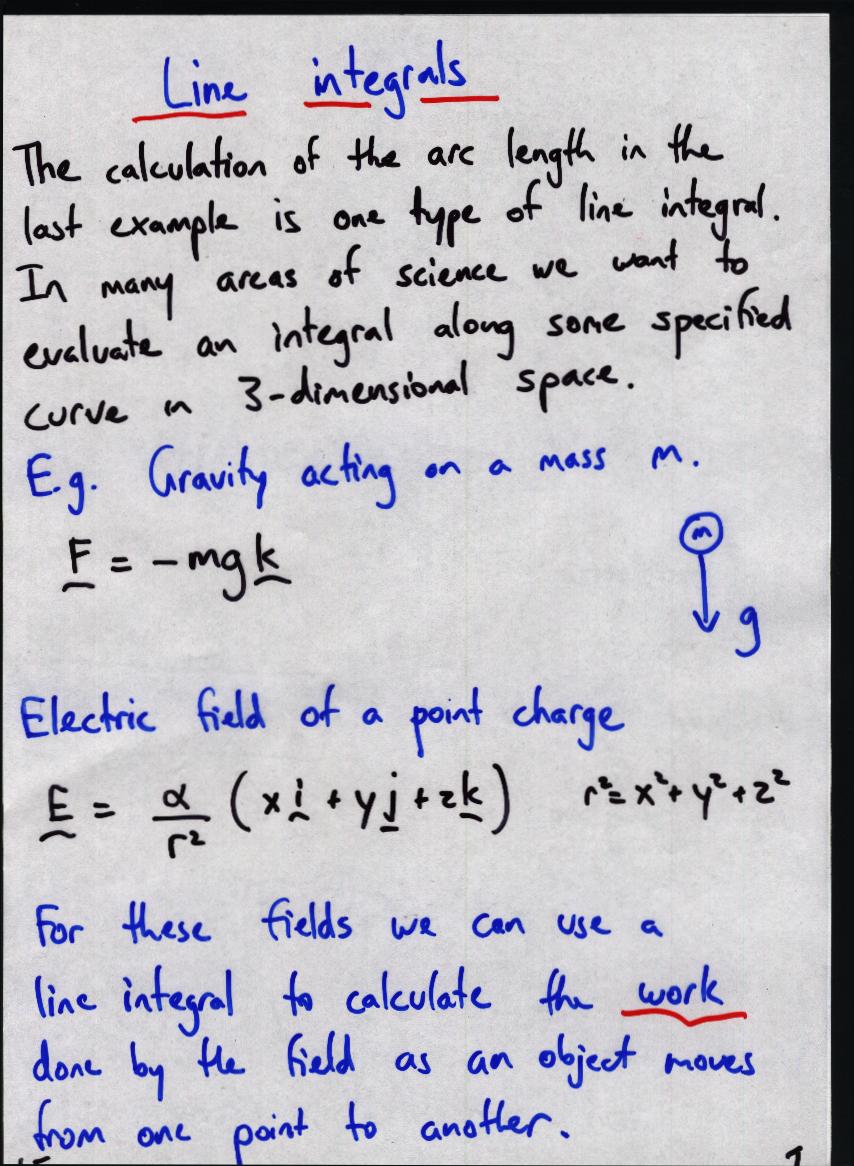 Line integrals
The calculation of the arc length in the
last example is one type of line integral.
In many areas of science we want to
evaluate an integral along some specified
curve in 3-dimensional space.
E.g. Gravity acting on a mass m.
F = -mgk
m
g
Electric field of a point charge
E = α/r² (xi + yj + zk) r² = x² + y² + z²
For these fields we can use a
line integral to calculate the work
done by the field as an object moves
from one point to another.